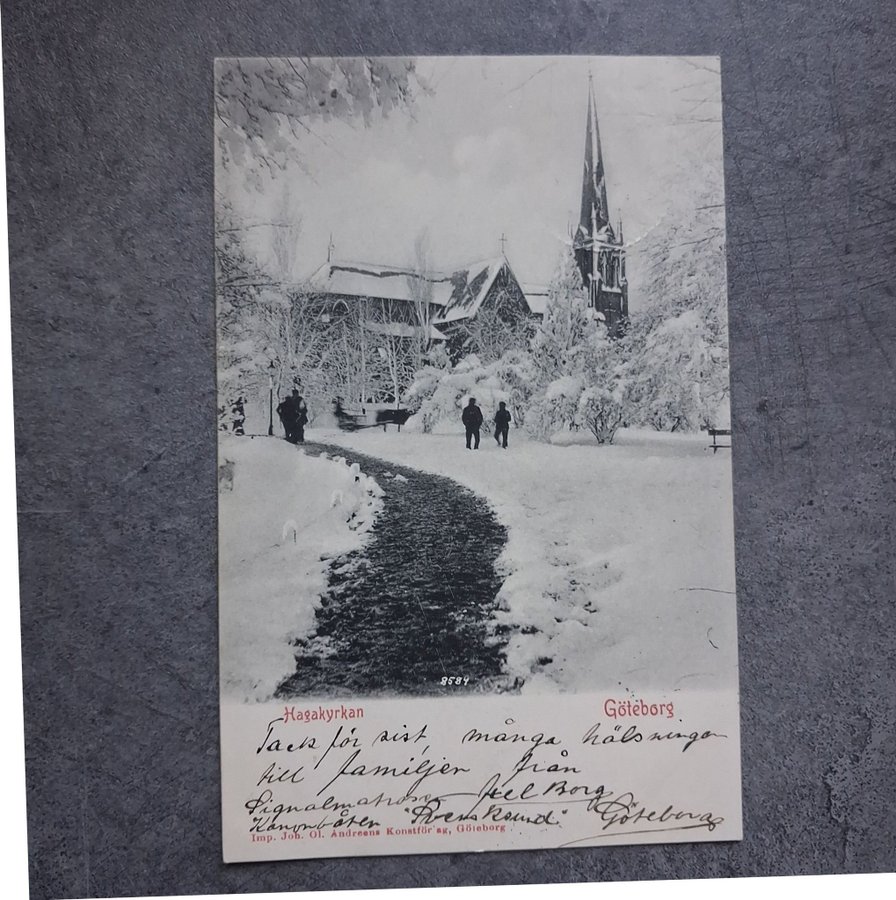 8584
Hagakyrkan
Göteborg
Tack för sist, många hälsningar
till familjen från
Signalmatrosen Axel Borg
Kanonbåten "Svensksund" Göteborg
Imp. Joh. Ol. Andreens Konstförlag, Göteborg